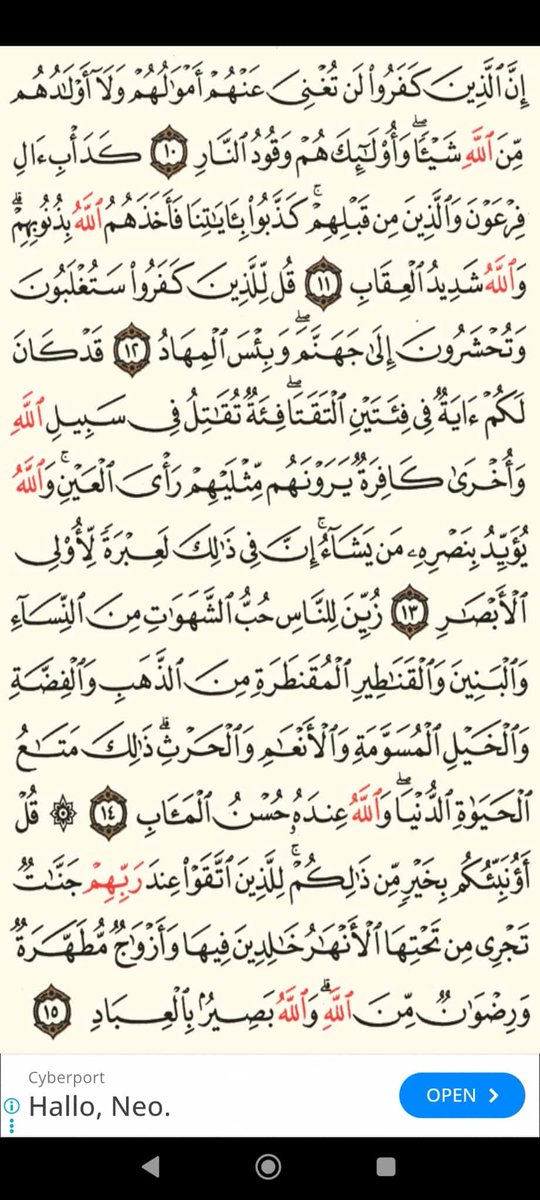 إِنَّ ٱلَّذِينَ كَفَرُوا۟ لَن تُغْنِىَ عَنْهُمْ أَمْوَٰلُهُمْ وَلَآ أَوْلَٰدُهُم
مِّنَ ٱللَّهِ شَيْـًٔا ۖ وَأُو۟لَٰٓئِكَ هُمْ وَقُودُ ٱلنَّارِ ١٠ كَدَأْبِ ءَالِ
فِرْعَوْنَ وَٱلَّذِينَ مِن قَبْلِهِمْ ۚ كَذَّبُوا۟ بِـَٔايَٰتِنَا فَأَخَذَهُمُ ٱللَّهُ بِذُنُوبِهِمْ ۗ
وَٱللَّهُ شَدِيدُ ٱلْعِقَابِ ١١ قُل لِّلَّذِينَ كَفَرُوا۟ سَتُغْلَبُونَ
وَتُحْشَرُونَ إِلَىٰ جَهَنَّمَ ۖ وَبِئْسَ ٱلْمِهَادُ ١٢ قَدْ كَانَ
لَكُمْ ءَايَةٌ فِى فِئَتَيْنِ ٱلْتَقَتَا ۖ فِئَةٌ تُقَٰتِلُ فِى سَبِيلِ ٱللَّهِ
وَأُخْرَىٰ كَافِرَةٌ يَرَوْنَهُم مِّثْلَيْهِمْ رَأْىَ ٱلْعَيْنِ ۚ وَٱللَّهُ
يُؤَيِّدُ بِنَصْرِهِۦ مَن يَشَآءُ ۚ إِنَّ فِى ذَٰلِكَ لَعِبْرَةً لِّأُو۟لِى
ٱلْأَبْصَٰرِ ١٣ زُيِّنَ لِلنَّاسِ حُبُّ ٱلشَّهَوَٰتِ مِنَ ٱلنِّسَآءِ
وَٱلْبَنِينَ وَٱلْقَنَٰطِيرِ ٱلْمُقَنطَرَةِ مِنَ ٱلذَّهَبِ وَٱلْفِضَّةِ
وَٱلْخَيْلِ ٱلْمُسَوَّمَةِ وَٱلْأَنْعَٰمِ وَٱلْحَرْثِ ۗ ذَٰلِكَ مَتَٰعُ
ٱلْحَيَوٰةِ ٱلدُّنْيَا ۖ وَٱللَّهُ عِندَهُۥ حُسْنُ ٱلْمَـَٔابِ ١٤ ۞ قُلْ
أَؤُنَبِّئُكُم بِخَيْرٍ مِّن ذَٰلِكُمْ ۚ لِلَّذِينَ ٱتَّقَوْا۟ عِندَ رَبِّهِمْ جَنَّٰتٌ
تَجْرِى مِن تَحْتِهَا ٱلْأَنْهَٰرُ خَٰلِدِينَ فِيهَا وَأَزْوَٰجٌ مُّطَهَّرَةٌ
وَرِضْوَٰنٌ مِّنَ ٱللَّهِ ۗ وَٱللَّهُ بَصِيرٌۢ بِٱلْعِبَادِ ١٥
Cyberport
Hallo, Neo.
OPEN